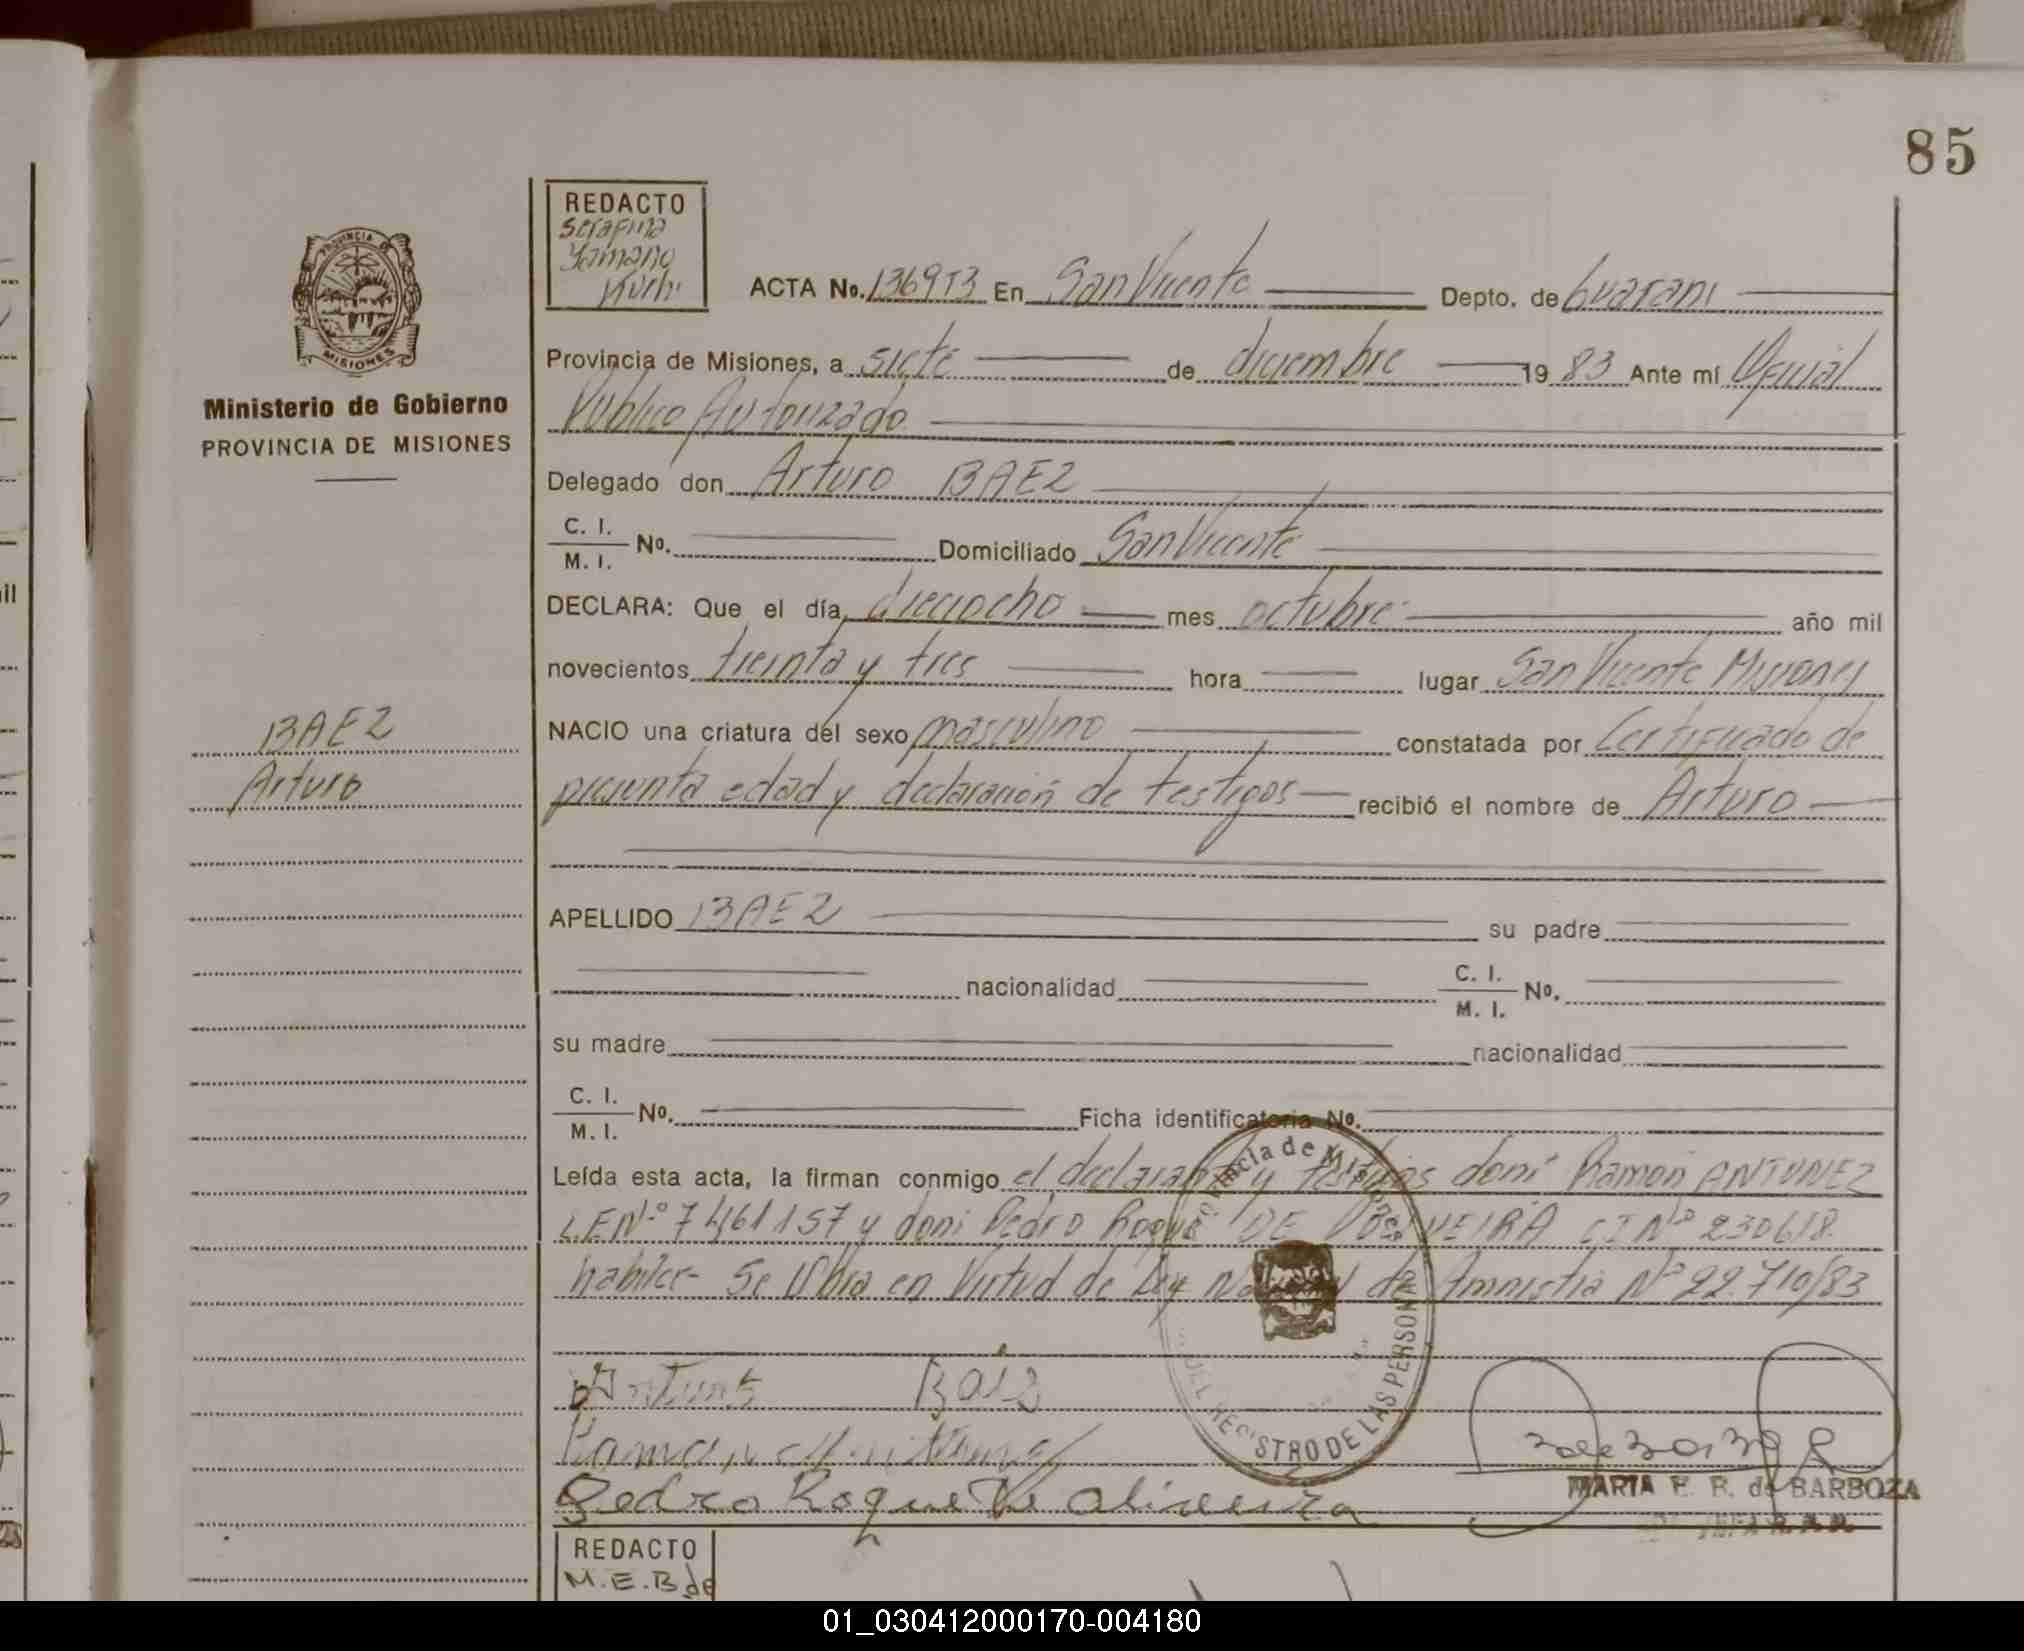 85
REDACTO
Serafina
Yamano
ACTA No. 136953 En San Vicente Depto. de Guarani
PROVINCIA DE
MISIONES
Provincia de Misiones, a siete de diciembre 19 83 Ante mí Oficial
Publico Autorizado
Ministerio de Gobierno
PROVINCIA DE MISIONES
Delegado don Arturo BAEZ
C. I.
M. I. No. Domiciliado San Vicente
DECLARA: Que el día dieciocho mes octubre año mil
novecientos treinta y tres hora lugar San Vicente Misiones
BAEZ
Arturo
NACIO una criatura del sexo masculino constatada por Certificado de
presunta edad y declaración de testigos recibió el nombre de Arturo
APELLIDO BAEZ su padre
nacionalidad C. I.
M. I. No.
su madre nacionalidad
C. I.
M. I. No. Ficha identificatoria No.
Leída esta acta, la firman conmigo el declarante y testigos don: Ramon ANTUNEZ
L.E Nº 7461157 y don: Pedro Roque DE OLIVEIRA CI Nº 230618
habiles- Se Labra en Virtud de Ley Nacional de Amnistia Nº 22.710/83
Provincia de Misiones
DEL REGISTRO DE LAS PERSONAS
Arturo Baez
Ramon Antunez
Pedro Roque De Oliveira
MARIA E. B. de BARBOZA
REDACTO
M.E.B de
01_030412000170-004180